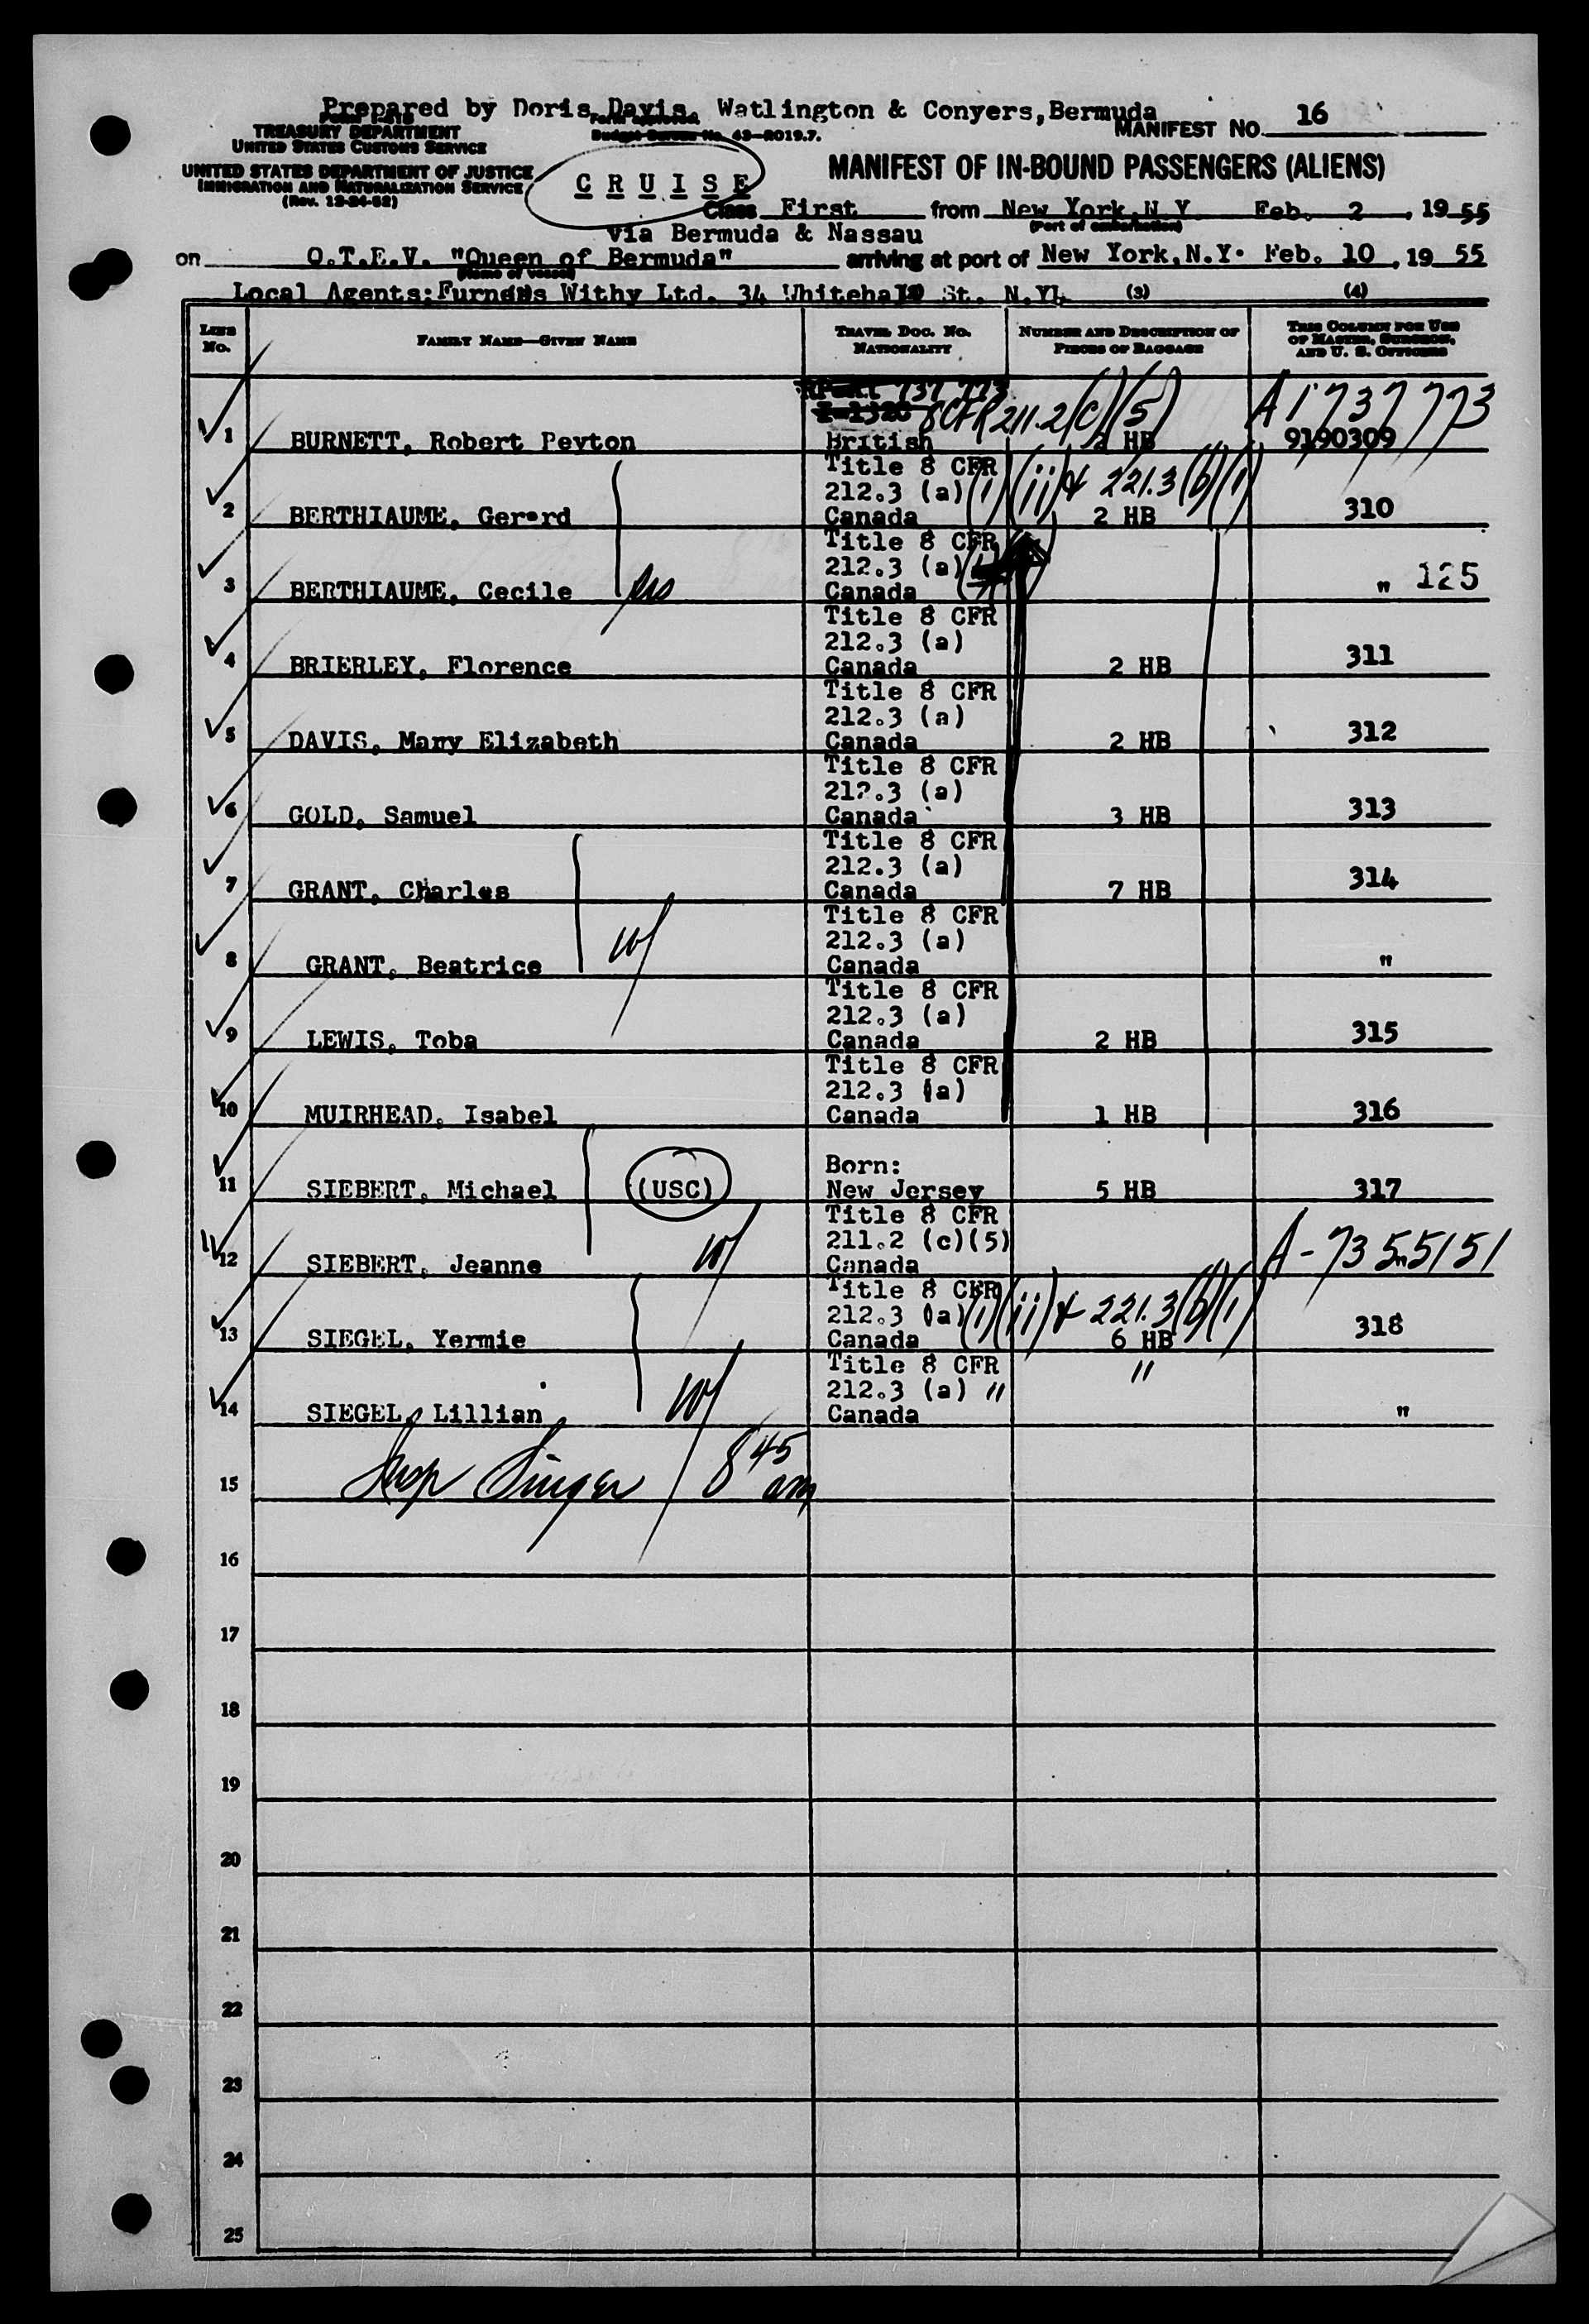 Prepared by Doris Davis, Watlington & Conyers, Bermuda
TREASURY DEPARTMENT
UNITED STATES CUSTOMS SERVICE
Budget Bureau No. 43-R019.7.
MANIFEST NO. 16
UNITED STATES DEPARTMENT OF JUSTICE
IMMIGRATION AND NATURALIZATION SERVICE
(Rev. 12-24-52)
CRUISE
MANIFEST OF IN-BOUND PASSENGERS (ALIENS)
Class First from New York, N.Y. Feb. 2, 1955
(Port of embarkation)
via Bermuda & Nassau
on Q.T.E.V. "Queen of Bermuda" arriving at port of New York, N.Y. Feb. 10, 1955
(Name of vessel)
Local Agents: Furness Withy Ltd. 34 Whitehall St. N.Y. (3) (4)
LINE No. FAMILY NAME—GIVEN NAME TRAVEL DOC. NO. NATIONALITY NUMBER AND DESCRIPTION OF PIECES OF BAGGAGE THIS COLUMN FOR USE OF MASTER, SURGEON, AND U. S. OFFICERS
737 773
8CFR 211.2(c)(5) A1737773
1 BURNETT, Robert Peyton British 2 HB 9190309
Title 8 CFR
212.3 (a)(1)(ii) & 221.3(b)(1)
2 BERTHIAUME, Gerard Canada 2 HB 310
Title 8 CFR
212.3 (a)
3 BERTHIAUME, Cecile Canada " 125
Title 8 CFR
212.3 (a)
4 BRIERLEY, Florence Canada 2 HB 311
Title 8 CFR
212.3 (a)
5 DAVIS, Mary Elizabeth Canada 2 HB 312
Title 8 CFR
212.3 (a)
6 GOLD, Samuel Canada 3 HB 313
Title 8 CFR
212.3 (a)
7 GRANT, Charles Canada 7 HB 314
Title 8 CFR
212.3 (a)
8 GRANT, Beatrice W/ Canada "
Title 8 CFR
212.3 (a)
9 LEWIS, Toba Canada 2 HB 315
Title 8 CFR
212.3 (a)
10 MUIRHEAD, Isabel Canada 1 HB 316
Born:
11 SIEBERT, Michael (USC) New Jersey 5 HB 317
Title 8 CFR
211.2 (c)(5) A-7355151
12 SIEBERT, Jeanne W/ Canada "
Title 8 CFR
212.3 (a)(1)(ii) & 221.3(b)(1)
13 SIEGEL, Yermie Canada 6 HB 318
Title 8 CFR "
212.3 (a) "
14 SIEGEL, Lillian W/ Canada "
15 Insp Singer 8 45 am
16
17
18
19
20
21
22
23
24
25